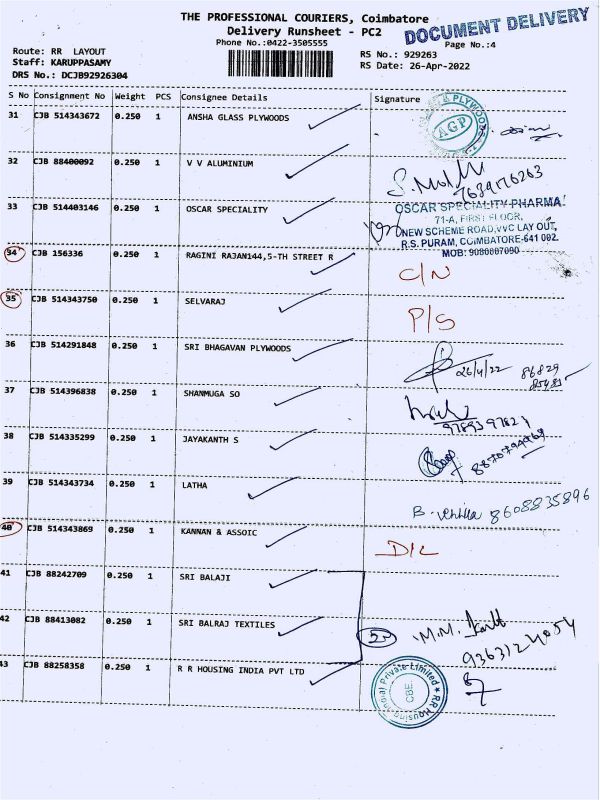 THE PROFESSIONAL COURIERS, Coimbatore
DOCUMENT DELIVERY
Delivery Runsheet - PC2
Phone No.:0422-3505555
Page No.:4
Route: RR LAYOUT
RS No.: 929263
Staff: KARUPPASAMY
RS Date: 26-Apr-2022
DRS No.: DCJB92926304
S No Consignment No Weight PCS Consignee Details Signature
31 CJB 514343672 0.250 1 ANSHA GLASS PLYWOODS
AGP
32 CJB 88400092 0.250 1 V V ALUMINIUM
7639176263
33 CJB 514403146 0.250 1 OSCAR SPECIALITY
OSCAR SPECIALITY PHARMA
71-A, FIRST FLOOR,
NEW SCHEME ROAD,VVC LAY OUT,
R.S. PURAM, COIMBATORE-641 002.
MOB: 9080007090
34 CJB 156336 0.250 1 RAGINI RAJAN144,5-TH STREET R
C/N
35 CJB 514343750 0.250 1 SELVARAJ
P/S
36 CJB 514291848 0.250 1 SRI BHAGAVAN PLYWOODS
26/4/22 86829
85483
37 CJB 514396838 0.250 1 SHANMUGA SO
38 CJB 514335299 0.250 1 JAYAKANTH S
39 CJB 514343734 0.250 1 LATHA
8608835896
40 CJB 514343869 0.250 1 KANNAN & ASSOIC
D/L
41 CJB 88242709 0.250 1 SRI BALAJI
42 CJB 88413082 0.250 1 SRI BALRAJ TEXTILES
M.M.
9363124054
43 CJB 88258358 0.250 1 R R HOUSING INDIA PVT LTD
CBE